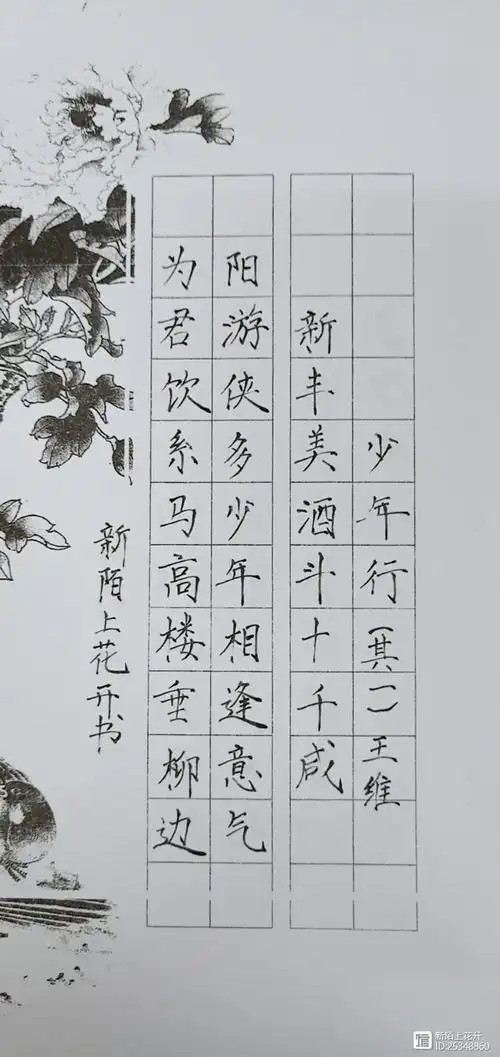 少年行其一 王维
新丰美酒斗十千咸
阳游侠多少年相逢意气
为君饮系马高楼垂柳边
新陌上花开书
新陌上花开
ID:25348860